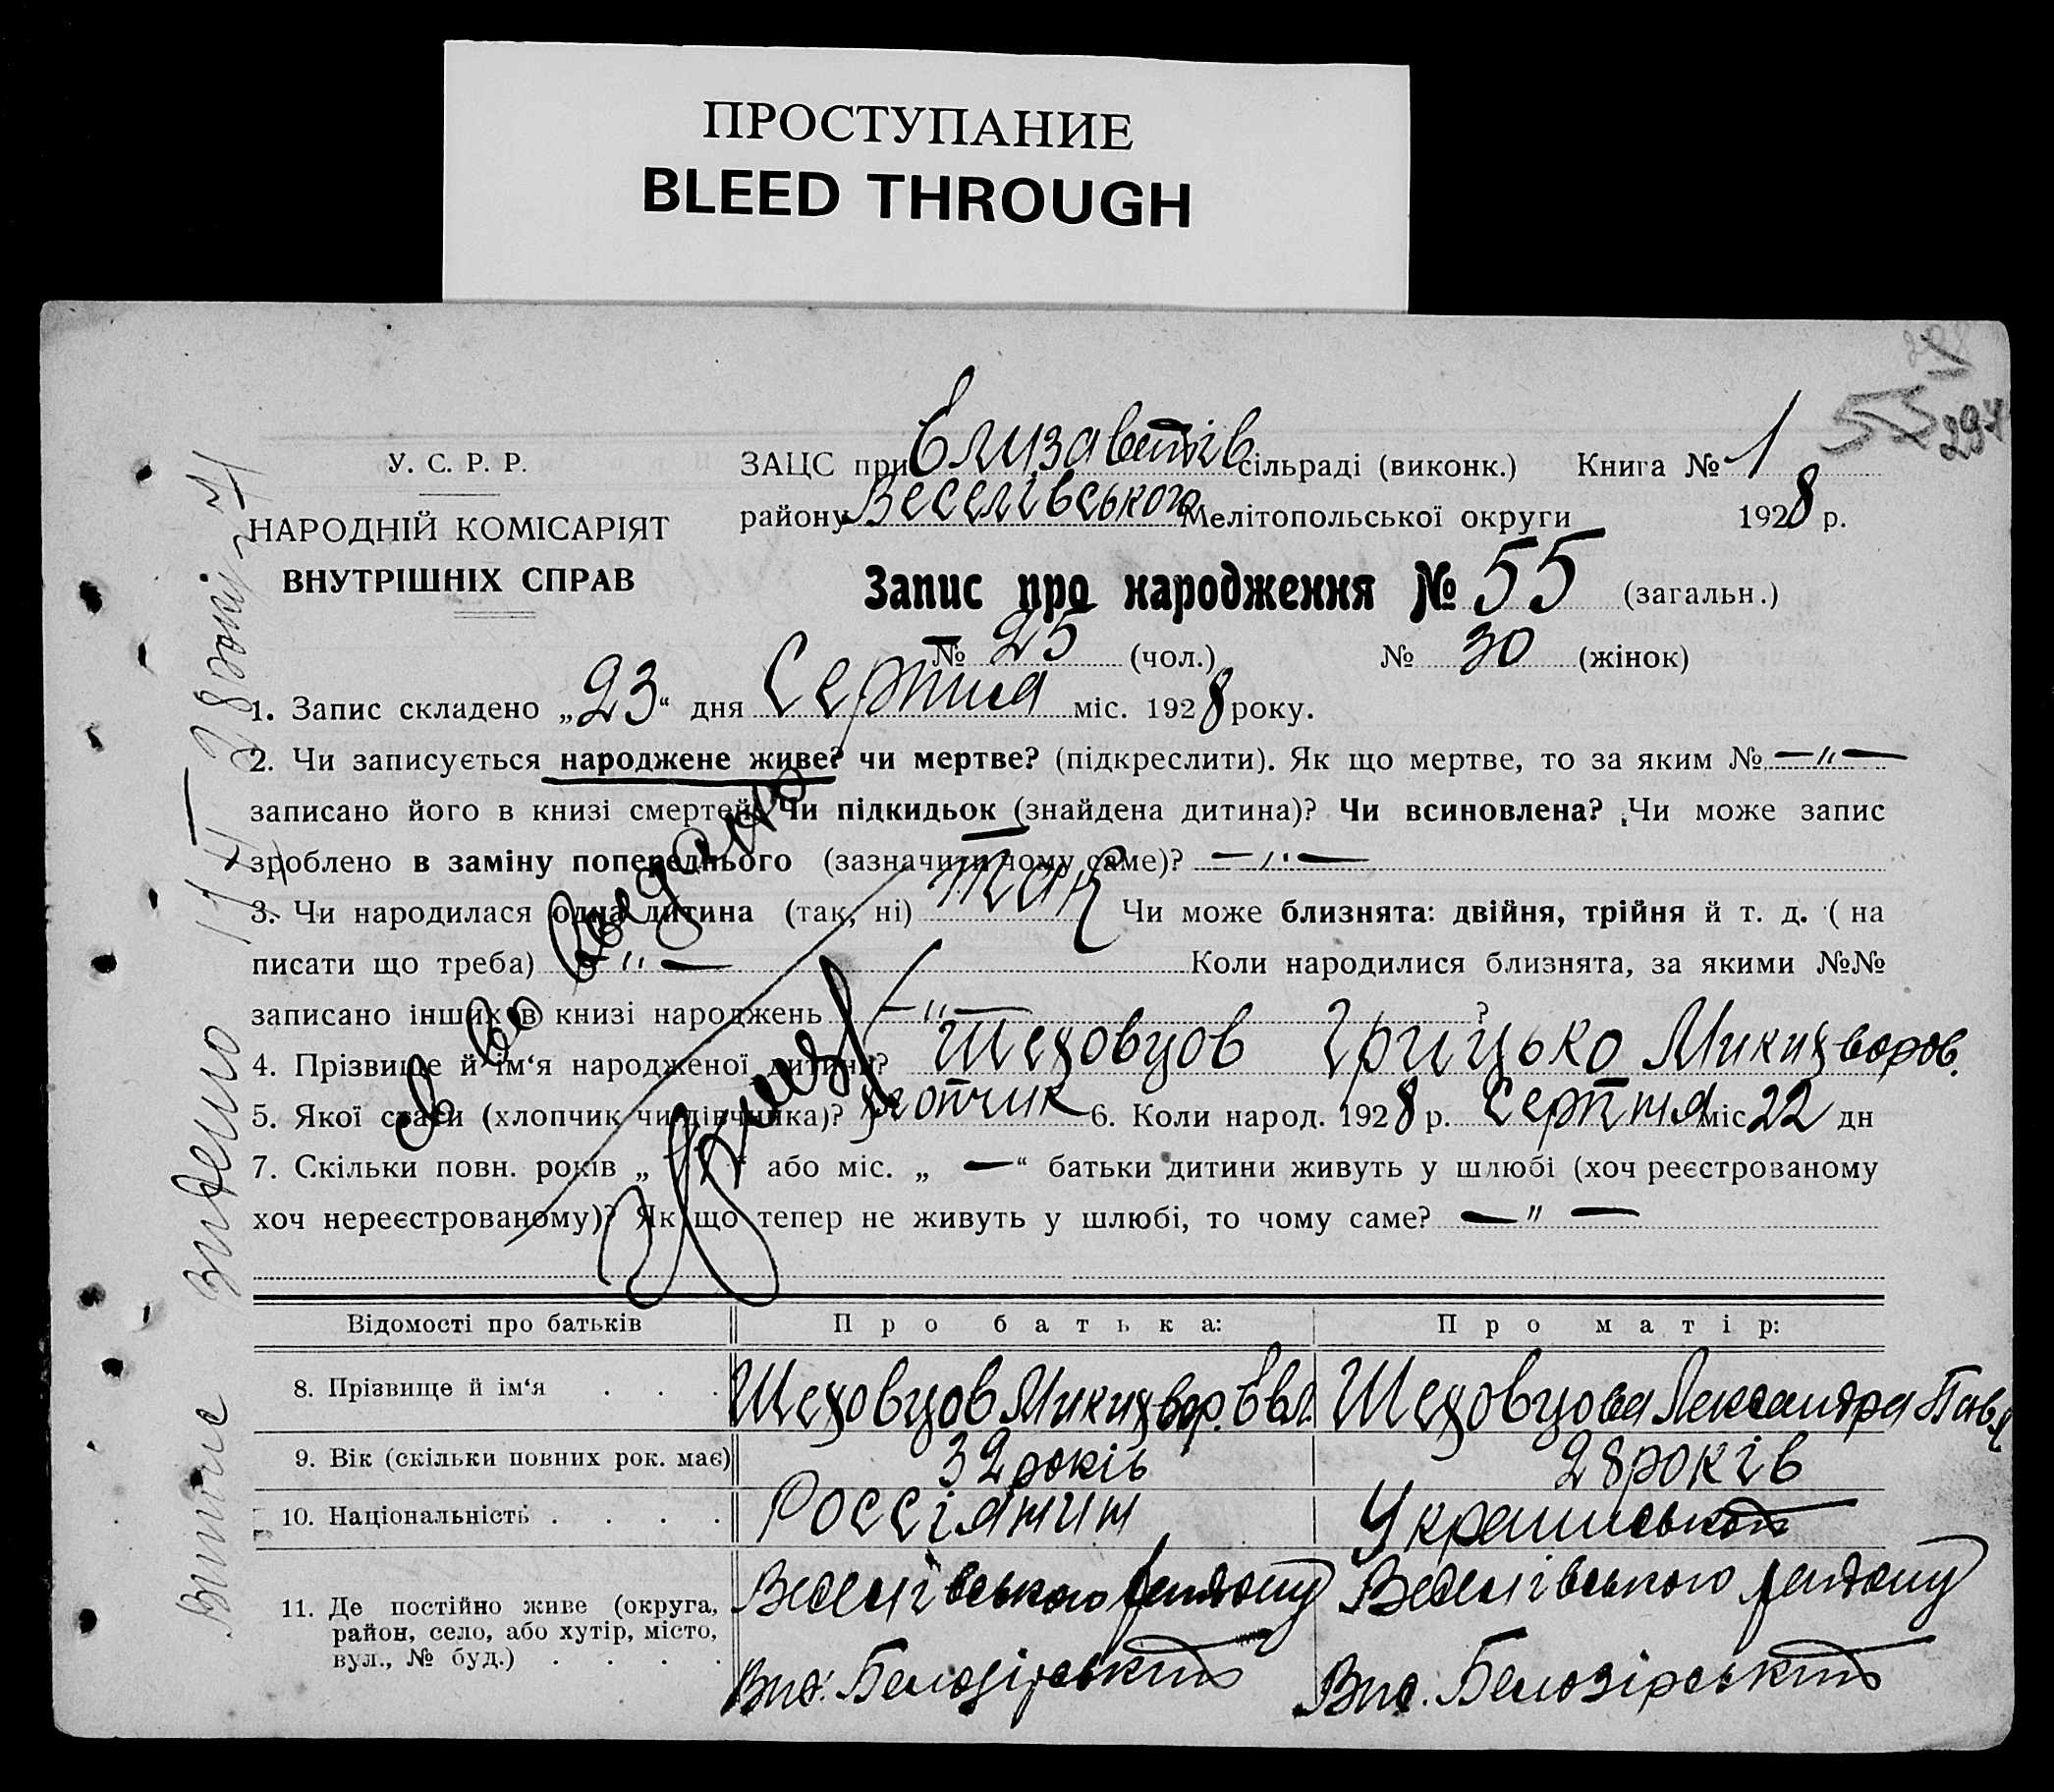 ПРОСТУПАНИЕ
BLEED THROUGH
55 294
У. С. Р. Р.
НАРОДНІЙ КОМІСАРІЯТ
ВНУТРІШНІХ СПРАВ
ЗАЦС при Єлизаветів сільраді (виконк.) Книга № 1
району Веселівського Мелітопольської округи 1928 р.
Запис про народження № 55 (загальн.)
№ 25 (чол.) № 30 (жінок)
1. Запис складено „23“ дня Серпня міс. 1928 року.
2. Чи записується народжене живе? чи мертве? (підкреслити). Як що мертве, то за яким № —"—
записано його в книзі смертей? Чи підкидьок (знайдена дитина)? Чи всиновлена? Чи може запис
зроблено в заміну попереднього (зазначити чому саме)? —"—
3. Чи народилася одна дитина (так, ні) так Чи може близнята: двійня, трійня й т. д. ( на
писати що треба) —"— Коли народилися близнята, за якими №№
записано інших в книзі народжень —"— ?
4. Прізвище й ім‘я народженої дитини? Шеховцов Грицько Микихворов.
5. Якої стати (хлопчик чи дівчинка)? хлопчик 6. Коли народ. 1928 р. Серпня міс 22 дн
7. Скільки повн. років „ “ або міс. „ —“ батьки дитини живуть у шлюбі (хоч реєстрованому
хоч нереєстрованому)? Як що тепер не живуть у шлюбі, то чому саме? —"—
Відомості про батьків Про батька: Про матір:
8. Прізвище й ім‘я . . . Шеховцов Микихвор. Шеховцова Лександра Павл
9. Вік (скільки повних рок. має) 32 років 28 років
10. Національність . . . . Россіянин Украинськой
11. Де постійно живе (округа, район, село, або хутір, місто, вул., № буд.) . . . .
Веселівського району Веселівського району
Вис. Белозірський Вис. Белозірський